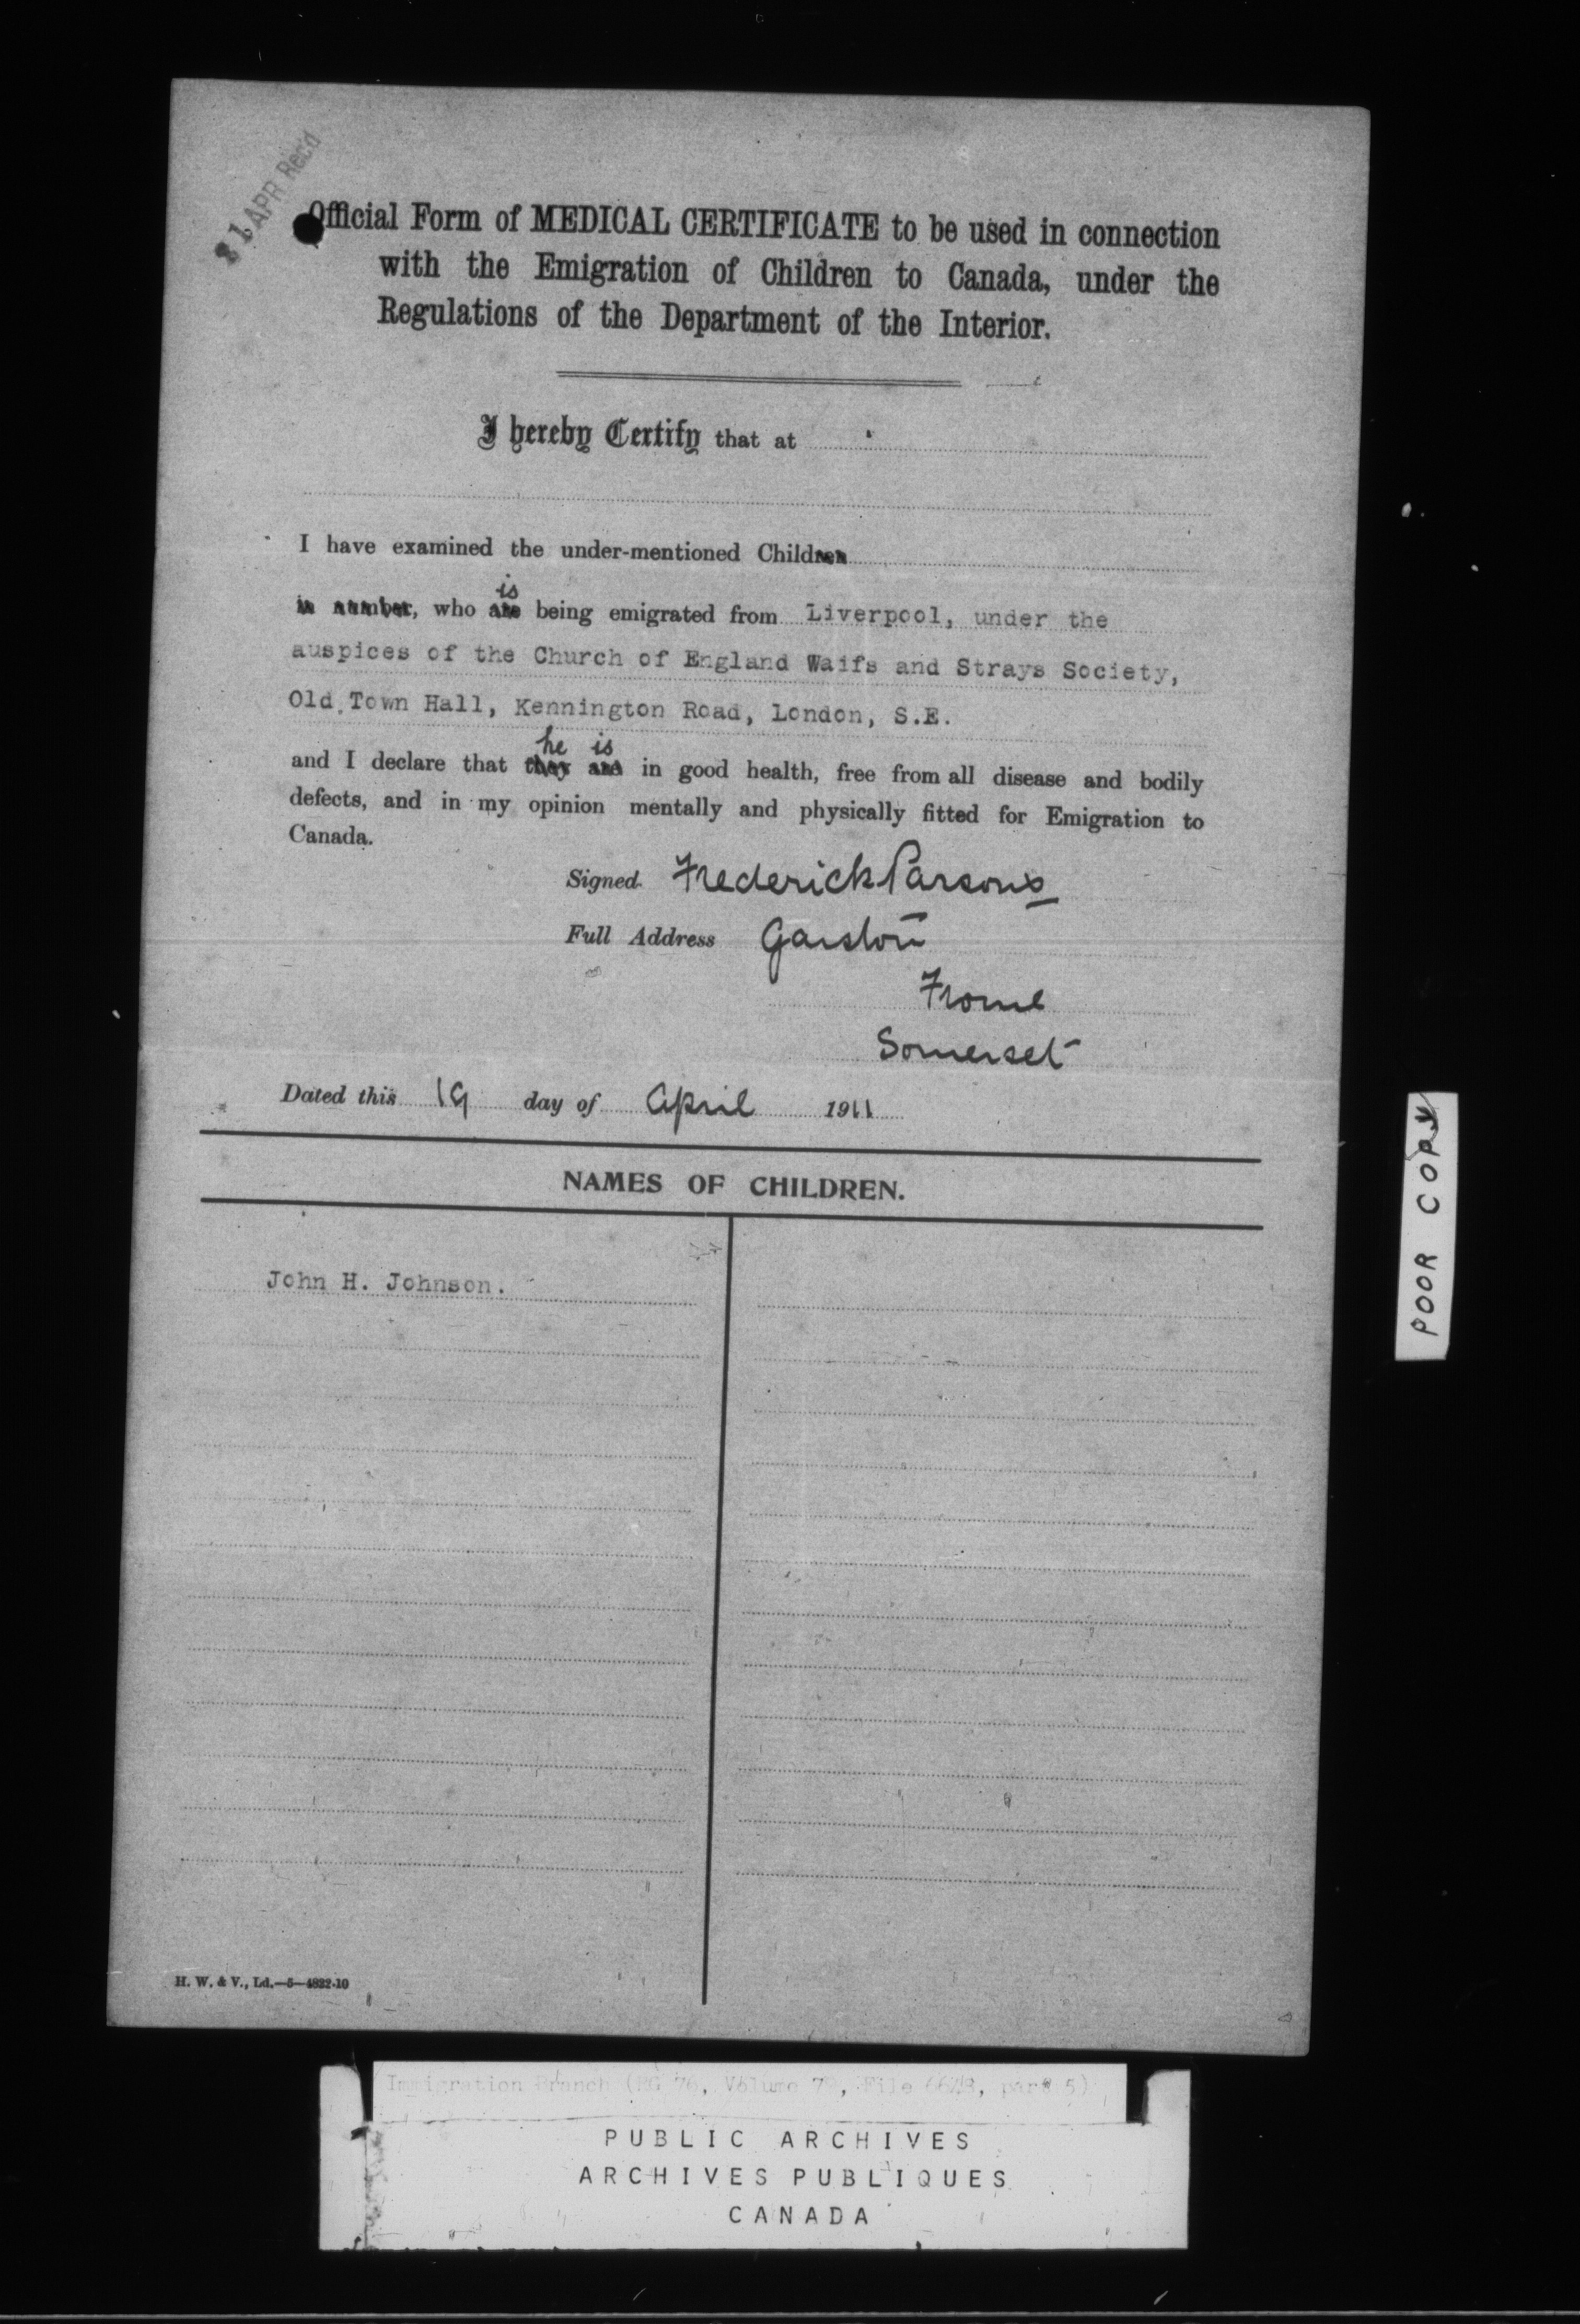 21 APR Recd
Official Form of MEDICAL CERTIFICATE to be used in connection
with the Emigration of Children to Canada, under the
Regulations of the Department of the Interior.
I hereby Certify that at
I have examined the under-mentioned Children
is
in number, who are being emigrated from Liverpool, under the
auspices of the Church of England Waifs and Strays Society,
Old Town Hall, Kennington Road, London, S.E.
he is
and I declare that they are in good health, free from all disease and bodily
defects, and in my opinion mentally and physically fitted for Emigration to
Canada.
Signed Frederick Parsons
Full Address Garston
Frome
Somerset
Dated this 19 day of April 1911
NAMES OF CHILDREN.
John H. Johnson.
H. W. & V., Ld.—5—4822-10
POOR COPY
Immigration Branch (RG 76, Volume, File, part 5)
PUBLIC ARCHIVES
ARCHIVES PUBLIQUES
CANADA